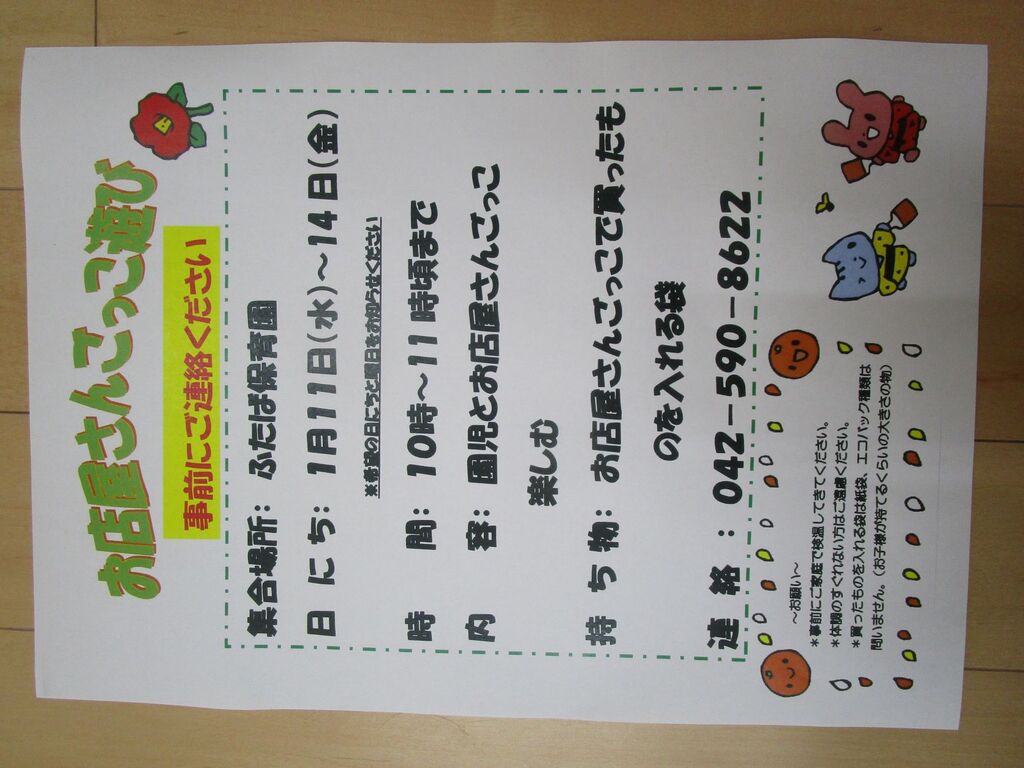 お店屋さんごっこ遊び
事前にご連絡ください
集合場所: ふたば保育園
日にち: 1月11日(水)~14日(金)
※希望の日にちと曜日をお知らせください
時 間: 10時~11時頃まで
内 容: 園児とお店屋さんごっこ
楽しむ
持ち物: お店屋さんごっこで買ったも
のを入れる袋
連 絡 : 042-590-8622
~お願い~
*事前にご家庭で検温してきてください。
*体調のすぐれない方はご遠慮ください。
*買ったものを入れる袋は紙袋、エコバック種類は
問いません。(お子様が持てるくらいの大きさの物)